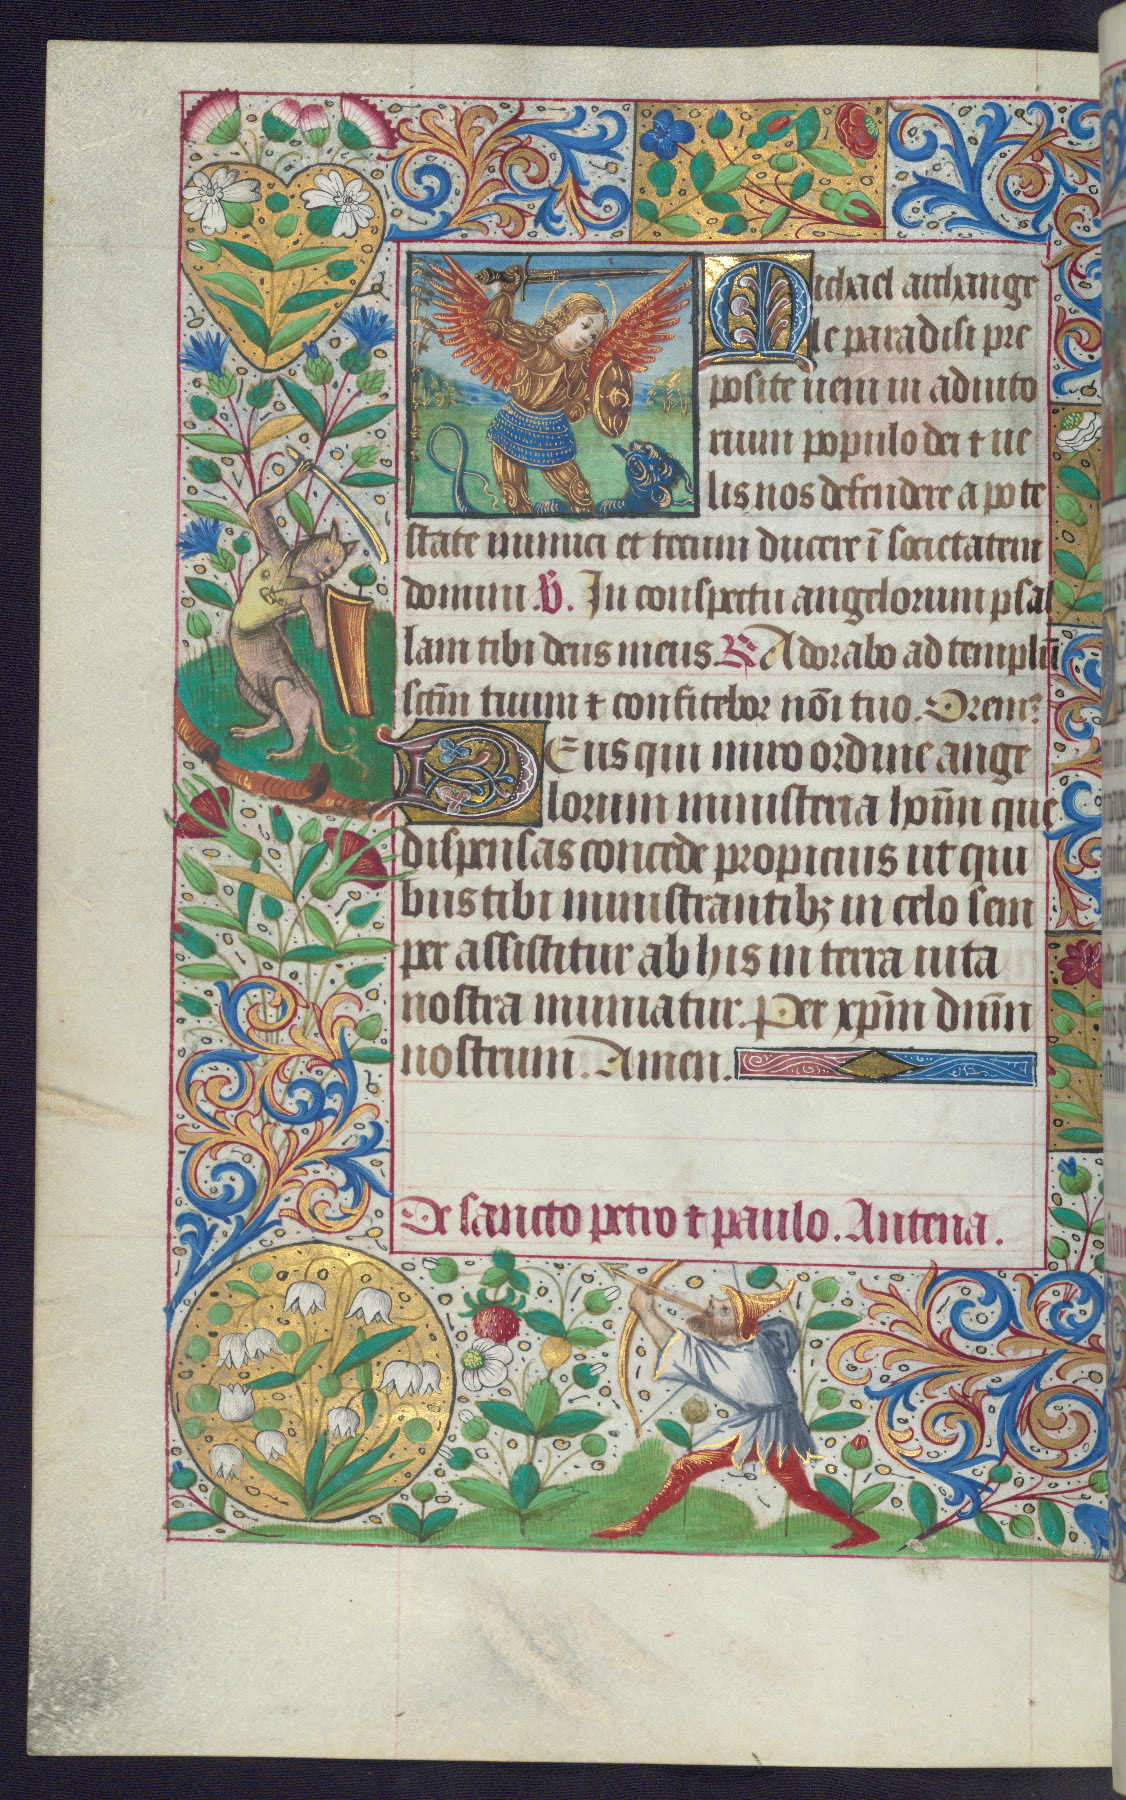 Michael archange
le paradisi pre
posite veni in adiuto
rium populo dei ⁊ ve
lis nos defendere a pote
state inimici et tecum ducere ī societatem
domini. ℣. In conspectu angelorum psal
lam tibi deus meus. ℟ Adorabo ad templū
sc̄m tuum ⁊ confitebor nōi tuo. Oremꝰ
Deus qui miro ordine ange
lorum ministeria ho͞im que
dispensas concede propicius ut qui
bus tibi ministrantibꝫ in celo sem
per assistitur ab his in terra vita
nostra muniatur. Per xp̄m dn̄m
nostrum. Amen.
De sancto petro ⁊ paulo. Antena.